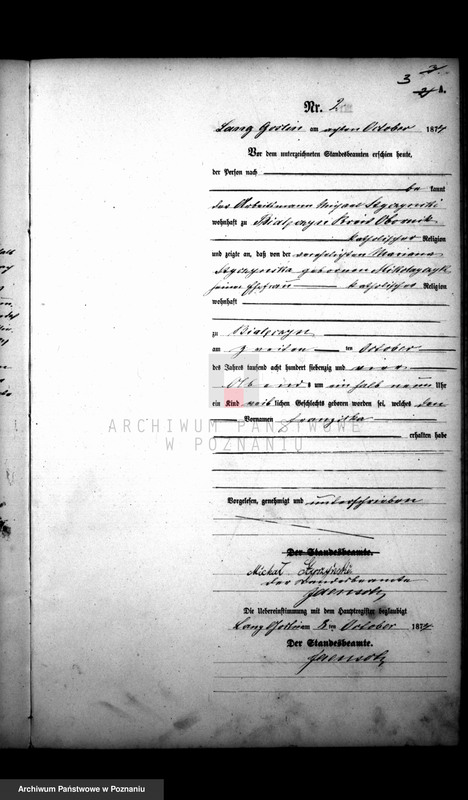 3
A.
Nr. 2
Lang Goslin am ersten October 1874
Vor dem unterzeichneten Standesbeamten erschien heute,
der Person nach
be kannt
der Arbeitsmann Michael Szyczynski
wohnhaft zu Bialczyn Kreis Obornik
katholischer Religion
und zeigte an, daß von der verehelichten Mariana
geborenen
seiner Ehefrau katholischer Religion
wohnhaft
zu Bialczyn
am zweiten ten October
des Jahres tausend acht hundert siebenzig und vier
Abends um ein halb neun Uhr
ein Kind weiblichen Geschlechts geboren worden sei, welches den
Vornamen Franziska
erhalten habe
ARCHIWUM PAŃSTWOWE
W POZNANIU
Vorgelesen, genehmigt und unterschrieben
Der Standesbeamte.
Michał
Der Standesbeamte
Die Uebereinstimmung mit dem Hauptregister beglaubigt
Lang Goslin am ten October 1874
Der Standesbeamte.
Archiwum Państwowe w Poznaniu